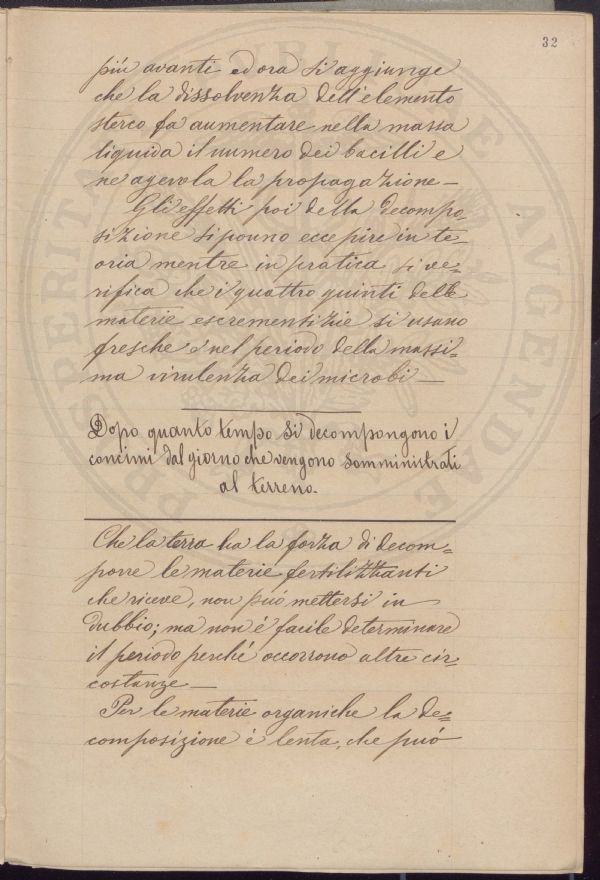 32
più avanti ed ora si aggiunge
che la dissolvenza dell'elemento
sterco fa aumentare nella massa
liquida il numero dei bacilli e
ne agevola la propagazione —
Gli effetti poi della decompo-
sizione si pouno eccepire in te-
oria mentre in pratica si ve-
rifica che i quattro quinti delle
materie escrementizie si usano
fresche e nel periodo della massi-
ma virulenza dei microbi —
Dopo quanto tempo si decompongono i
concimi dal giorno che vengono somministrati
al terreno.
Che la terra ha la forza di decom=
porre le materie fertilizzanti
che riceve, non può mettersi in
dubbio; ma non é facile determinare
il periodo perché occorrono altre cir=
costanze —
Per le materie organiche la de=
composizione é lenta, che può